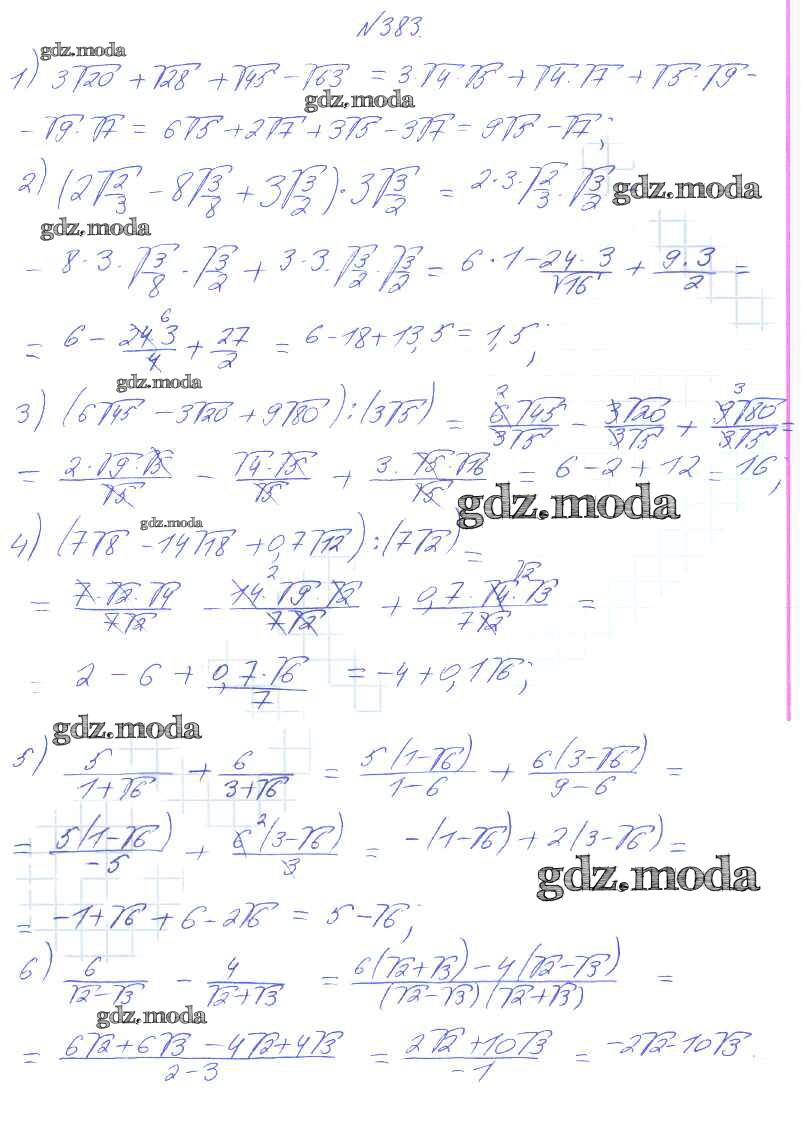 №383.
gdz.moda
1) 3√20 + √28 + √45 − √63 = 3·√4·√5 + √4·√7 + √5·√9 −
gdz.moda
− √9·√7 = 6√5 + 2√7 + 3√5 − 3√7 = 9√5 − √7;
2) (2√2/3 − 8√3/8 + 3√3/2)·3√3/2 = 2·3·√2/3·√3/2 −
gdz.moda
gdz.moda
− 8·3·√3/8·√3/2 + 3·3·√3/2·√3/2 = 6·1 − 24·3/√16 + 9·3/2 =
= 6 − 24·3/4 6 + 27/2 = 6 − 18 + 13,5 = 1,5;
gdz.moda
3) (6√45 − 3√20 + 9√80) : (3√5) = 2 6√45/3√5 − 3√20/3√5 + 3 9√80/3√5 =
= 2·√9·√5/√5 − √4·√5/√5 + 3·√5·√16/√5 = 6 − 2 + 12 = 16;
gdz.moda
gdz.moda
4) (7√8 − 14√18 + 0,7√12) : (7√2) =
= 7·√2·√4/7√2 − 14·√9·√2/7√2 2 + 0,7·√4·√3/7√2 √2 =
= 2 − 6 + 0,7·√6/7 = −4 + 0,1√6;
gdz.moda
5) 5/1+√6 + 6/3+√6 = 5(1−√6)/1−6 + 6(3−√6)/9−6 =
= 5(1−√6)/−5 + 6 2(3−√6)/3 = −(1−√6) + 2(3−√6) =
gdz.moda
= −1+√6 + 6 − 2√6 = 5 − √6;
6) 6/√2−√3 − 4/√2+√3 = 6(√2+√3) − 4(√2−√3)/(√2−√3)(√2+√3) =
gdz.moda
= 6√2+6√3 − 4√2+4√3/2−3 = 2√2+10√3/−1 = −2√2−10√3.